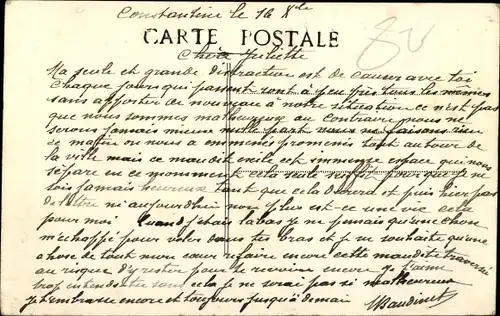 Constantine le 16 Xbre
CARTE POSTALE
Chère Juliette
Ma seule et grande distraction est de causer avec toi
Chaque jours qui passent sont à peu près tous les mêmes
sans apporter de nouveau à notre situation ce n'est pas
que nous sommes malheureux au contraire nous ne
serons jamais mieux nulle part nous ne faisons rien
ce matin on nous a emmenés promener tout autour de
la ville mais ce maudit exile cet immense espace qui nous
sépare en ce momment cela seul suffit pour que je ne
sois jamais heureux tant que cela durera et puis hier pas
de lettre ni aujourdhui non plus est ce une vie cela
pour moi Quand j'étais labas je ne pensais qu'une chose
m'echappé pour voler dans tes bras et je ne souhaite qu'une
chose de tout mon cœur refaire encore cette maudite traversé
au risque d'y rester pour te revoir encore je t'aime
trop sans cela je ne serai pas si malheureux
je t'embrasse encore et toujours jusqu'à demain
HBaudinet